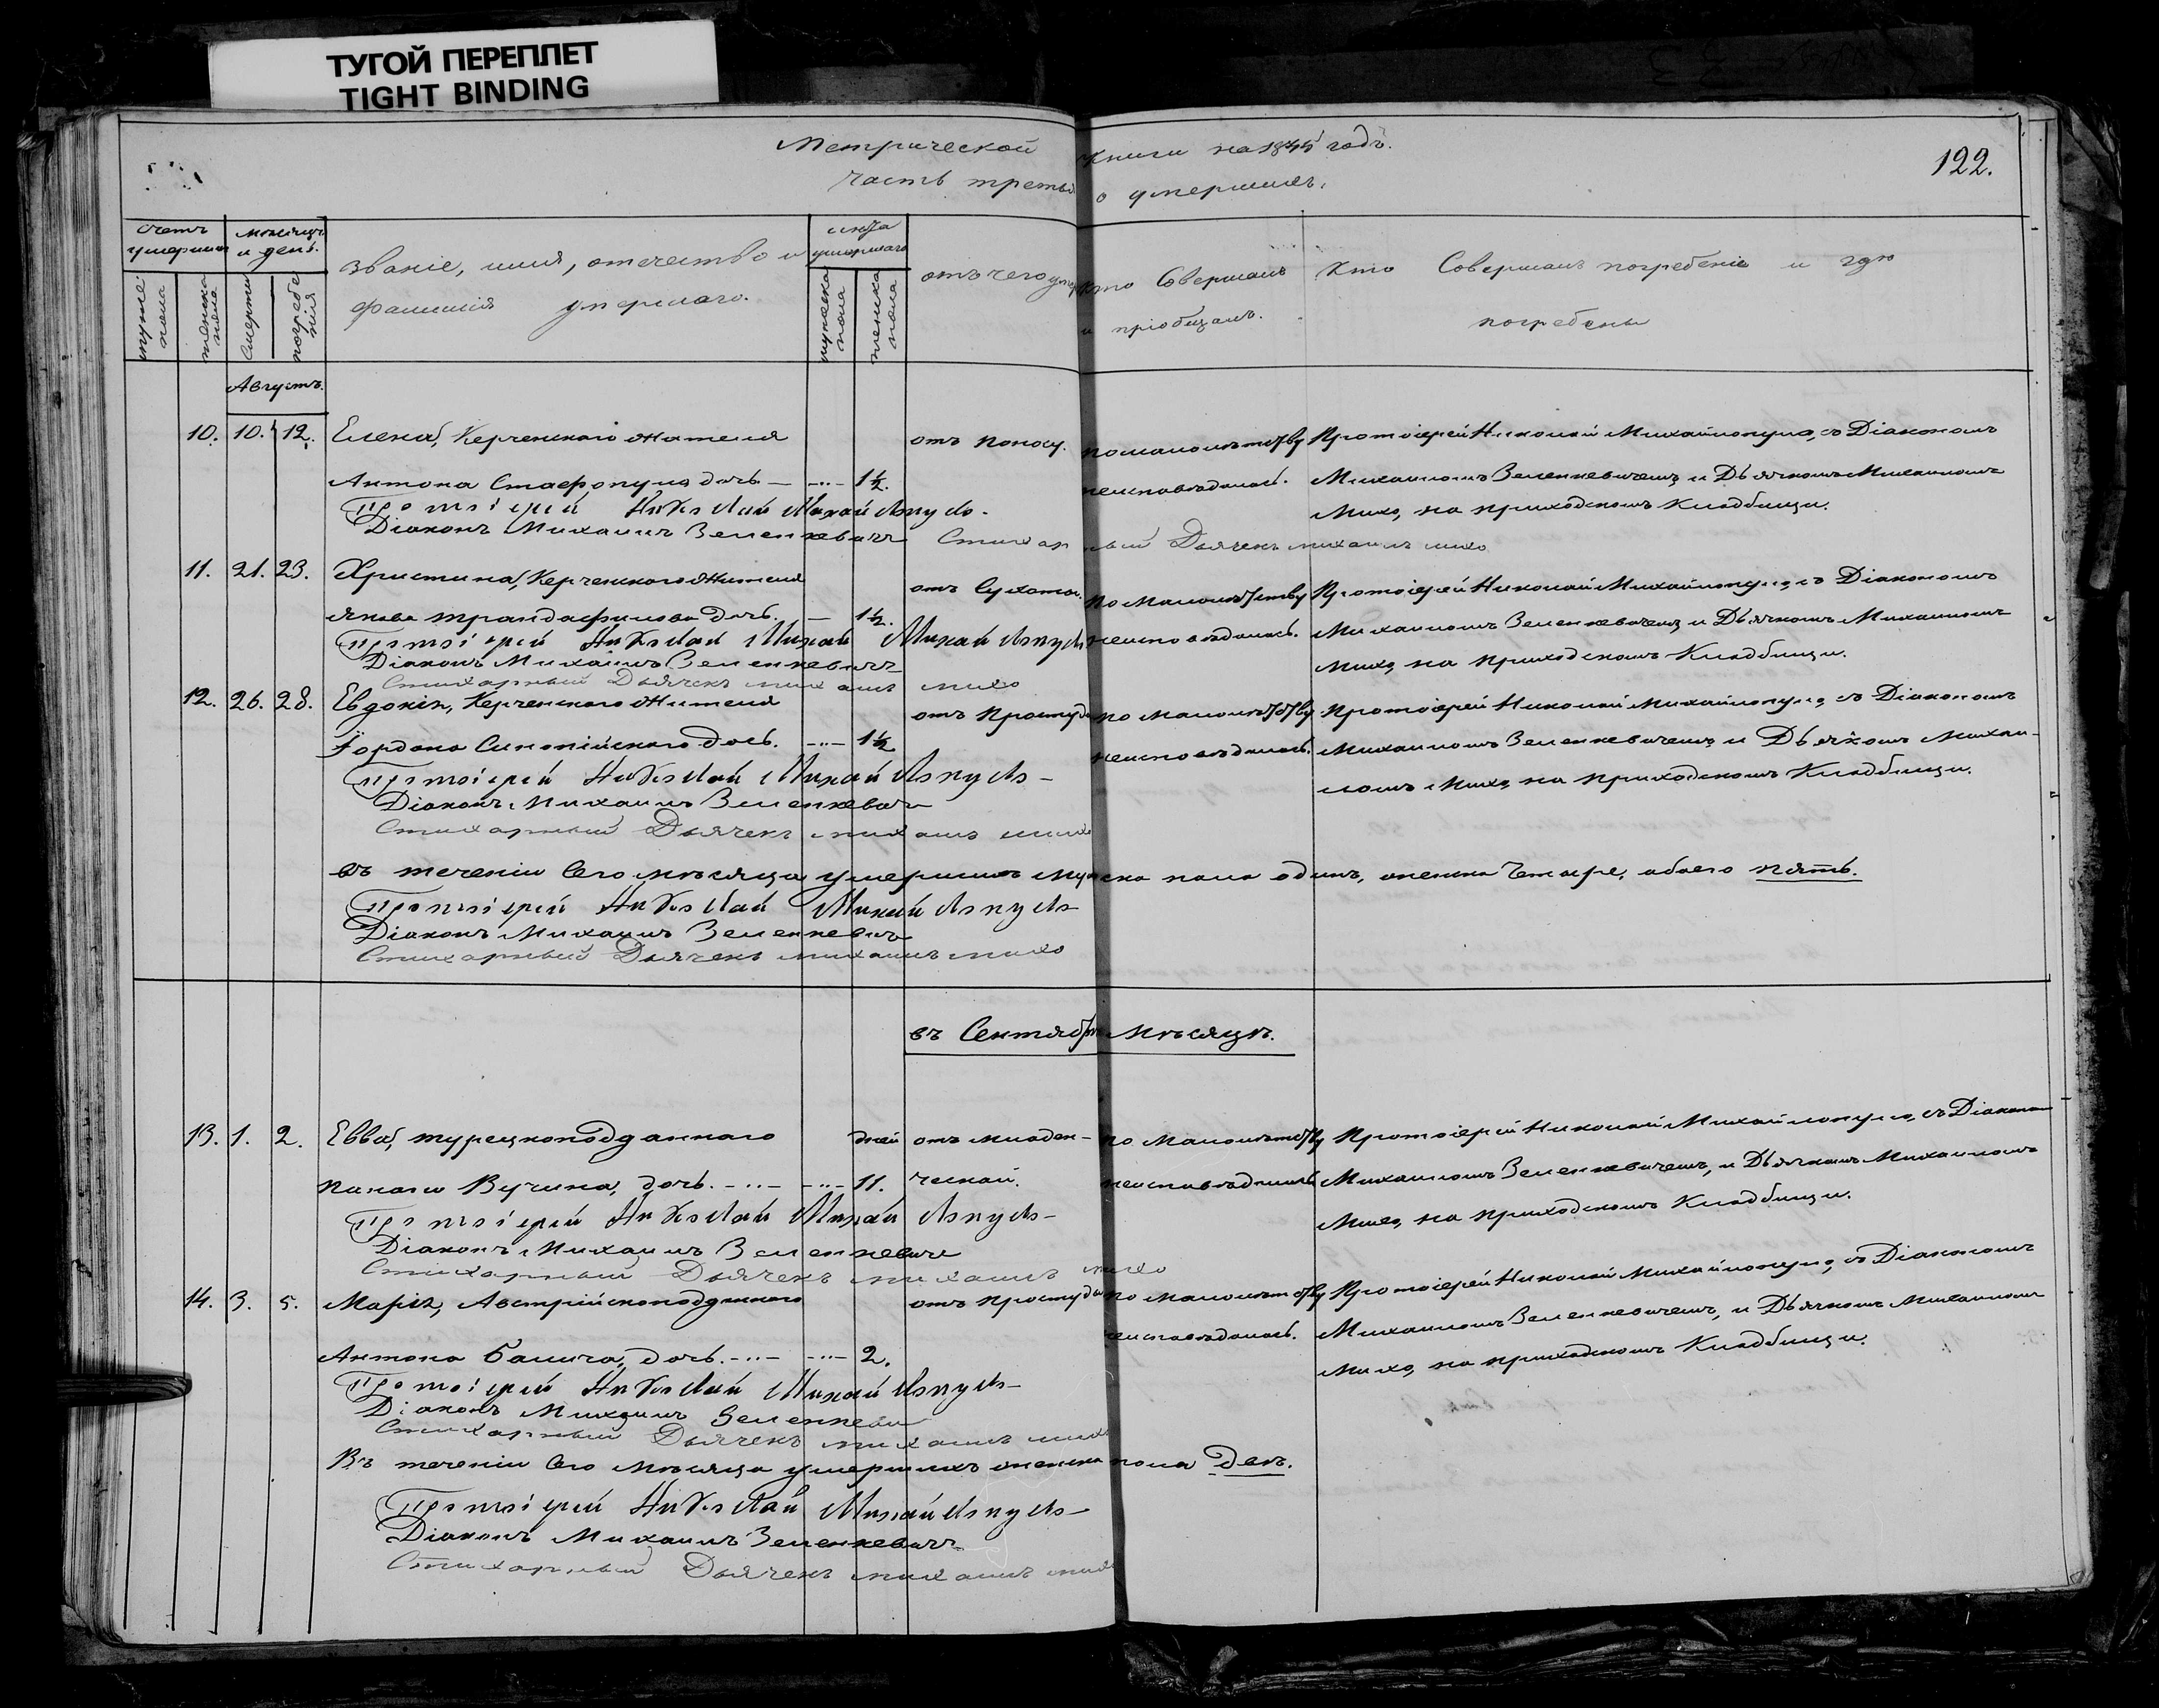 ТУГОЙ ПЕРЕПЛЕТ
TIGHT BINDING
Метрической книги на 1844 годъ.
часть третья о умершихъ.
122.
счетъ умершихъ
мѣсяцъ и день.
мужес. пола
женска пола
смерти
погребенія
званіе, имя, отечество и
фамилія умершаго.
лѣта умершаго
мужеска пола
женска пола
отъ чего умеръ
кто Совершалъ
и пріобщалъ.
Кто Совершалъ погребеніе и гдѣ
погребены
Августъ.
10. 10. 12. Елена, Керченскаго жителя отъ поносу. по малолѣтству Протоіерей Николай Михайлопуло, съ Діакономъ
Антона Ставропуло дочь — 1½. неисповѣдалась. Михаиломъ Зеленкевичемъ и Дьячкомъ Михаиломъ
Протоіерей Николай Михайлопуло. Михо, на приходскомъ Кладбищи.
Діаконъ Михаилъ Зеленкевичъ Стихарный Дьячекъ михаилъ михо
11. 21. 23. Христина, Керченскаго Жителя отъ Сухоты. по Малолѣтству Протоіерей Николай Михайлопуло, съ Діакономъ
Якова Трандафилова дочь. — 1½. неисповѣдалась. Михаиломъ Зеленкевичемъ и Дьячкомъ Михаиломъ
Протоіерей Николай Михай Михайлопуло Михо, на приходскомъ Кладбищи.
Діаконъ Михаилъ Зеленкевичъ
Стихарный Дьячекъ михаилъ михо
12. 26. 28. Евдокія, Керченскаго Жителя отъ простуды по малолѣтству Протоіерей Николай Михайлопуло, съ Діакономъ
Іордана Синопійскаго дочь. — 1½ неисповѣдалась. Михаиломъ Зеленкевичемъ и Дьячкомъ Михаи-
Протоіерей Николай Михайлопуло — ломъ Михо, на приходскомъ Кладбищи.
Діаконъ Михаилъ Зеленкевичъ
Стихарный Дьячекъ михаилъ михо
въ теченіи Сего мѣсяца умершихъ мужеска пола одинъ, женска Четыре, обоего пять.
Протоіерей Николай Михайлопуло
Діаконъ Михаилъ Зеленкевичъ
Стихарный Дьячекъ михаилъ михо
въ Сентябрѣ Мѣсяцѣ.
13. 1. 2. Евва, турецкоподданнаго дней отъ младен- по Малолѣтству Протоіерей Николай Михайлопуло, съ Діакономъ
Панаго Вучина, дочь. — 11. ческой. неисповѣдалась Михаиломъ Зеленкевичемъ, и Дьячкомъ Михаиломъ
Протоіерей Николай Михайлопуло — Михо, на приходскомъ Кладбищи.
Діаконъ Михаилъ Зеленкевичъ
Стихарный Дьячекъ михаилъ михо
14. 3. 5. Марія, Австрійскоподданнаго отъ простуды по малолѣтству Протоіерей Николай Михайлопуло, съ Діакономъ
Антона Балича, дочь. — 2. неисповѣдалась. Михаиломъ Зеленкевичемъ, и Дьячкомъ Михаиломъ
Протоіерей Николай Михайлопуло — Михо, на приходскомъ Кладбищи.
Діаконъ Михаилъ Зеленкевичъ
Стихарный Дьячекъ михаилъ михо
Въ теченіи Сего мѣсяца умершихъ женска пола Двѣ.
Протоіерей Николай Михайлопуло —
Діаконъ Михаилъ Зеленкевичъ
Стихарный Дьячекъ михаилъ михо